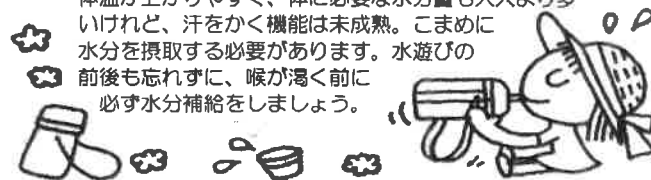 体温が上がりやすく、体に必要な水分量も大人より多
いけれど、汗をかく機能は未成熟。こまめに
水分を摂取する必要があります。水遊びの
前後も忘れずに、喉が渇く前に
必ず水分補給をしましょう。